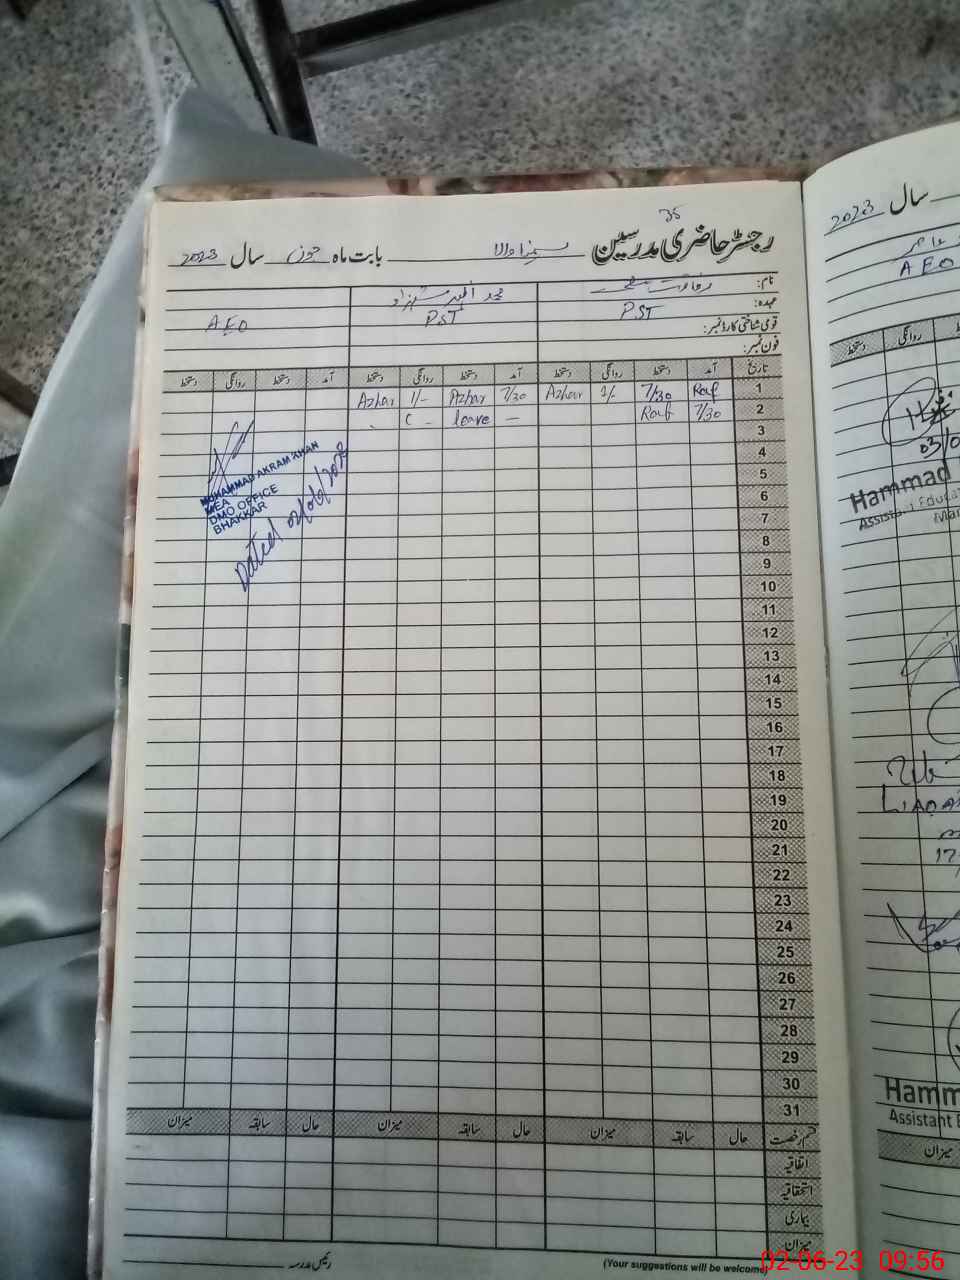 35
رجسٹر حاضری مدرسین بابت ماہ جون سال 2023
نام:
عہدہ: PST PST AEO
قومی شناختی کارڈ نمبر:
فون نمبر:
تاریخ آمد دستخط روانگی دستخط آمد دستخط روانگی دستخط آمد دستخط روانگی دستخط
1 Rauf 7/30 1/- Azhar 7/30 Azhar 1/- Azhar
2 7/30 Rauf — leave C -
3
4
5
6
7
8
9
10
11
12
13
14
15
16
17
18
19
20
21
22
23
24
25
26
27
28
29
30
31
MUHAMMAD AKRAM KHAN
MEA
DMO OFFICE
BHAKKAR
Dated 02/06/2023
قسم رخصت حال سابقہ میزان حال سابقہ میزان حال سابقہ میزان
اتفاقیہ
استحقاقیہ
بیماری
میزان
رئیس مدرسہ
(Your suggestions will be welcome)
سال 2023
AEO
روانگی دستخط
03/0
Hammad
Assistant Educat
Ma
LIAQA
17
Hamm
Assistant E
میزان
02-06-23 09:56